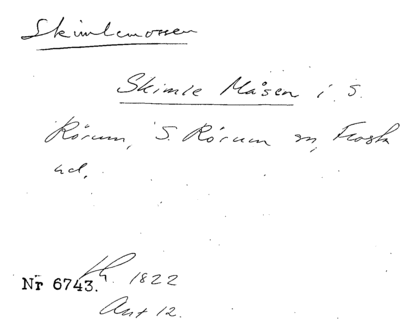 Skimlemossen
Skimle Måsen i S.
Rörum, S. Rörum sn, Frosta
hd.
Nr 6743. 1822
Akt 12.